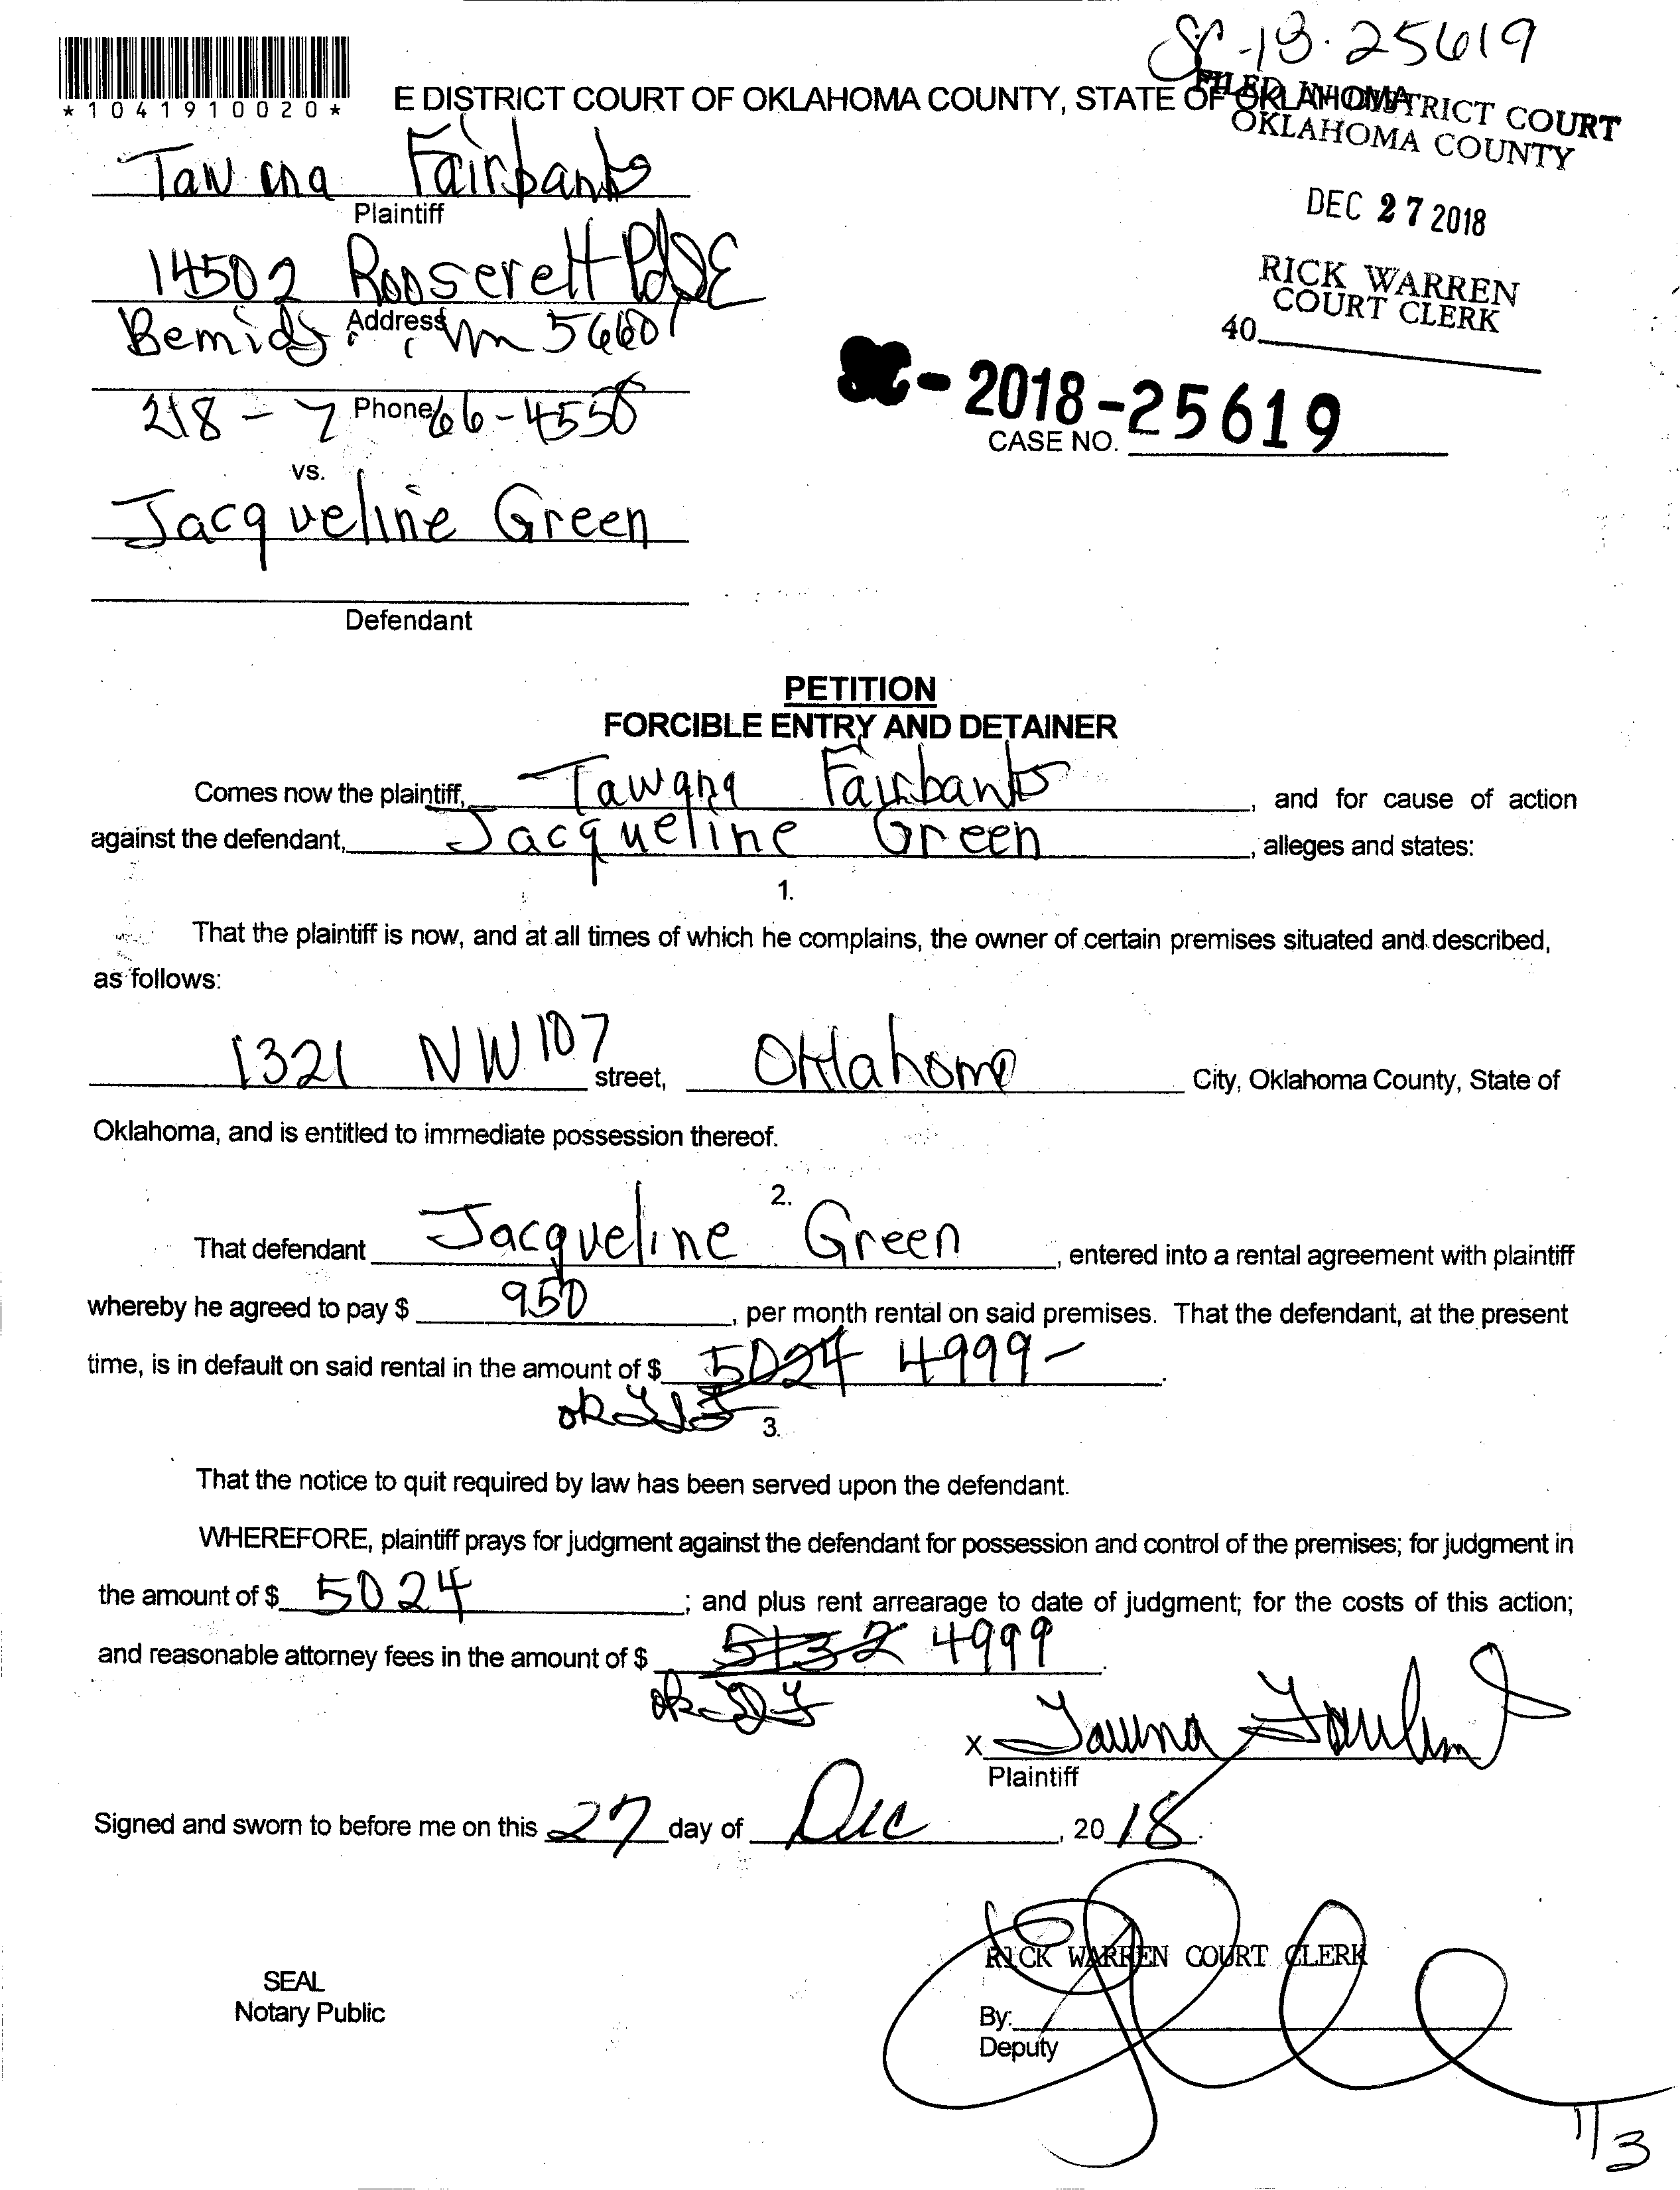 SC-18-25619
*1041910020*
E DISTRICT COURT OF OKLAHOMA COUNTY, STATE OF OKLAHOMA
FILED IN DISTRICT COURT
OKLAHOMA COUNTY
Tawana Fairbanks
Plaintiff
DEC 27 2018
14502 Roosevelt Rd SE
RICK WARREN
COURT CLERK
Address
Bemidji, Mn 56601
40
SC-2018-25619
CASE NO.
Phone
218-766-4558
vs.
Jacqueline Green
Defendant
PETITION
FORCIBLE ENTRY AND DETAINER
Comes now the plaintiff, Tawana Fairbanks, and for cause of action
against the defendant, Jacqueline Green, alleges and states:
1.
That the plaintiff is now, and at all times of which he complains, the owner of certain premises situated and described,
as follows:
1321 NW 107 street, Oklahoma City, Oklahoma County, State of
Oklahoma, and is entitled to immediate possession thereof.
2.
That defendant Jacqueline Green, entered into a rental agreement with plaintiff
whereby he agreed to pay $ 950, per month rental on said premises. That the defendant, at the present
time, is in default on said rental in the amount of $ 5024 4999-.
ok
3.
That the notice to quit required by law has been served upon the defendant.
WHEREFORE, plaintiff prays for judgment against the defendant for possession and control of the premises; for judgment in
the amount of $ 5024; and plus rent arrearage to date of judgment; for the costs of this action;
and reasonable attorney fees in the amount of $ 5132 4999.
ok
X
Plaintiff
Signed and sworn to before me on this 27 day of Dec, 2018.
RICK WARREN COURT CLERK
SEAL
Notary Public
By:
Deputy
1/3